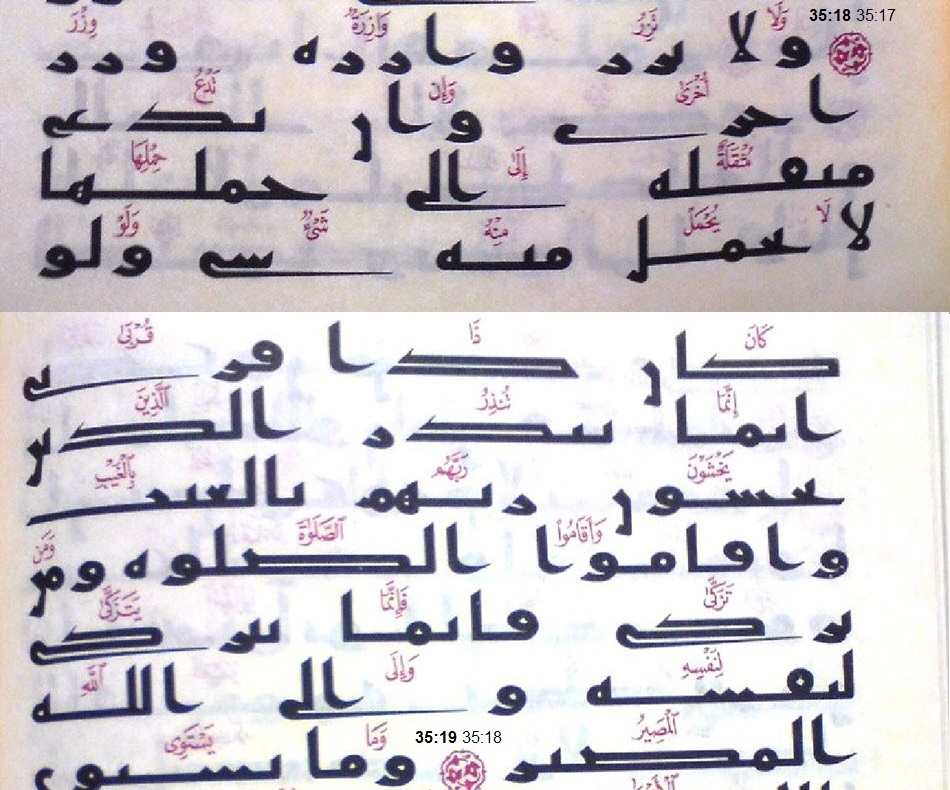 35:18 35:17
وَلَا تَزِرُ وَازِرَةٌ وِزْرَ
ولا ٮرر واررہ ورر
أُخْرَىٰ وَإِن تَدْعُ
احرى واں ٮدع
مُثْقَلَةٌ إِلَىٰ حِمْلِهَا
مٮڡله الى حملها
لَا يُحْمَلْ مِنْهُ شَىْءٌ وَلَوْ
لا ٮحمل مٮه سى ولو
كَانَ ذَا قُرْبَىٰ
كاں دا ڡرٮى
إِنَّمَا تُنذِرُ ٱلَّذِينَ
اٮما ٮٮدر الدٮں
يَخْشَوْنَ رَبَّهُم بِٱلْغَيْبِ
ٮحسوں رٮهم ٮالعٮٮ
وَأَقَامُوا۟ ٱلصَّلَوٰةَ وَمَن
واڡاموا الصلوه ومں
تَزَكَّىٰ فَإِنَّمَا يَتَزَكَّىٰ
ٮركى ڡاٮما ٮٮركى
لِنَفْسِهِۦ وَإِلَى ٱللَّهِ
لٮڡسه والى الله
ٱلْمَصِيرُ 35:19 35:18 وَمَا يَسْتَوِى
المصٮر وما ٮسٮوى